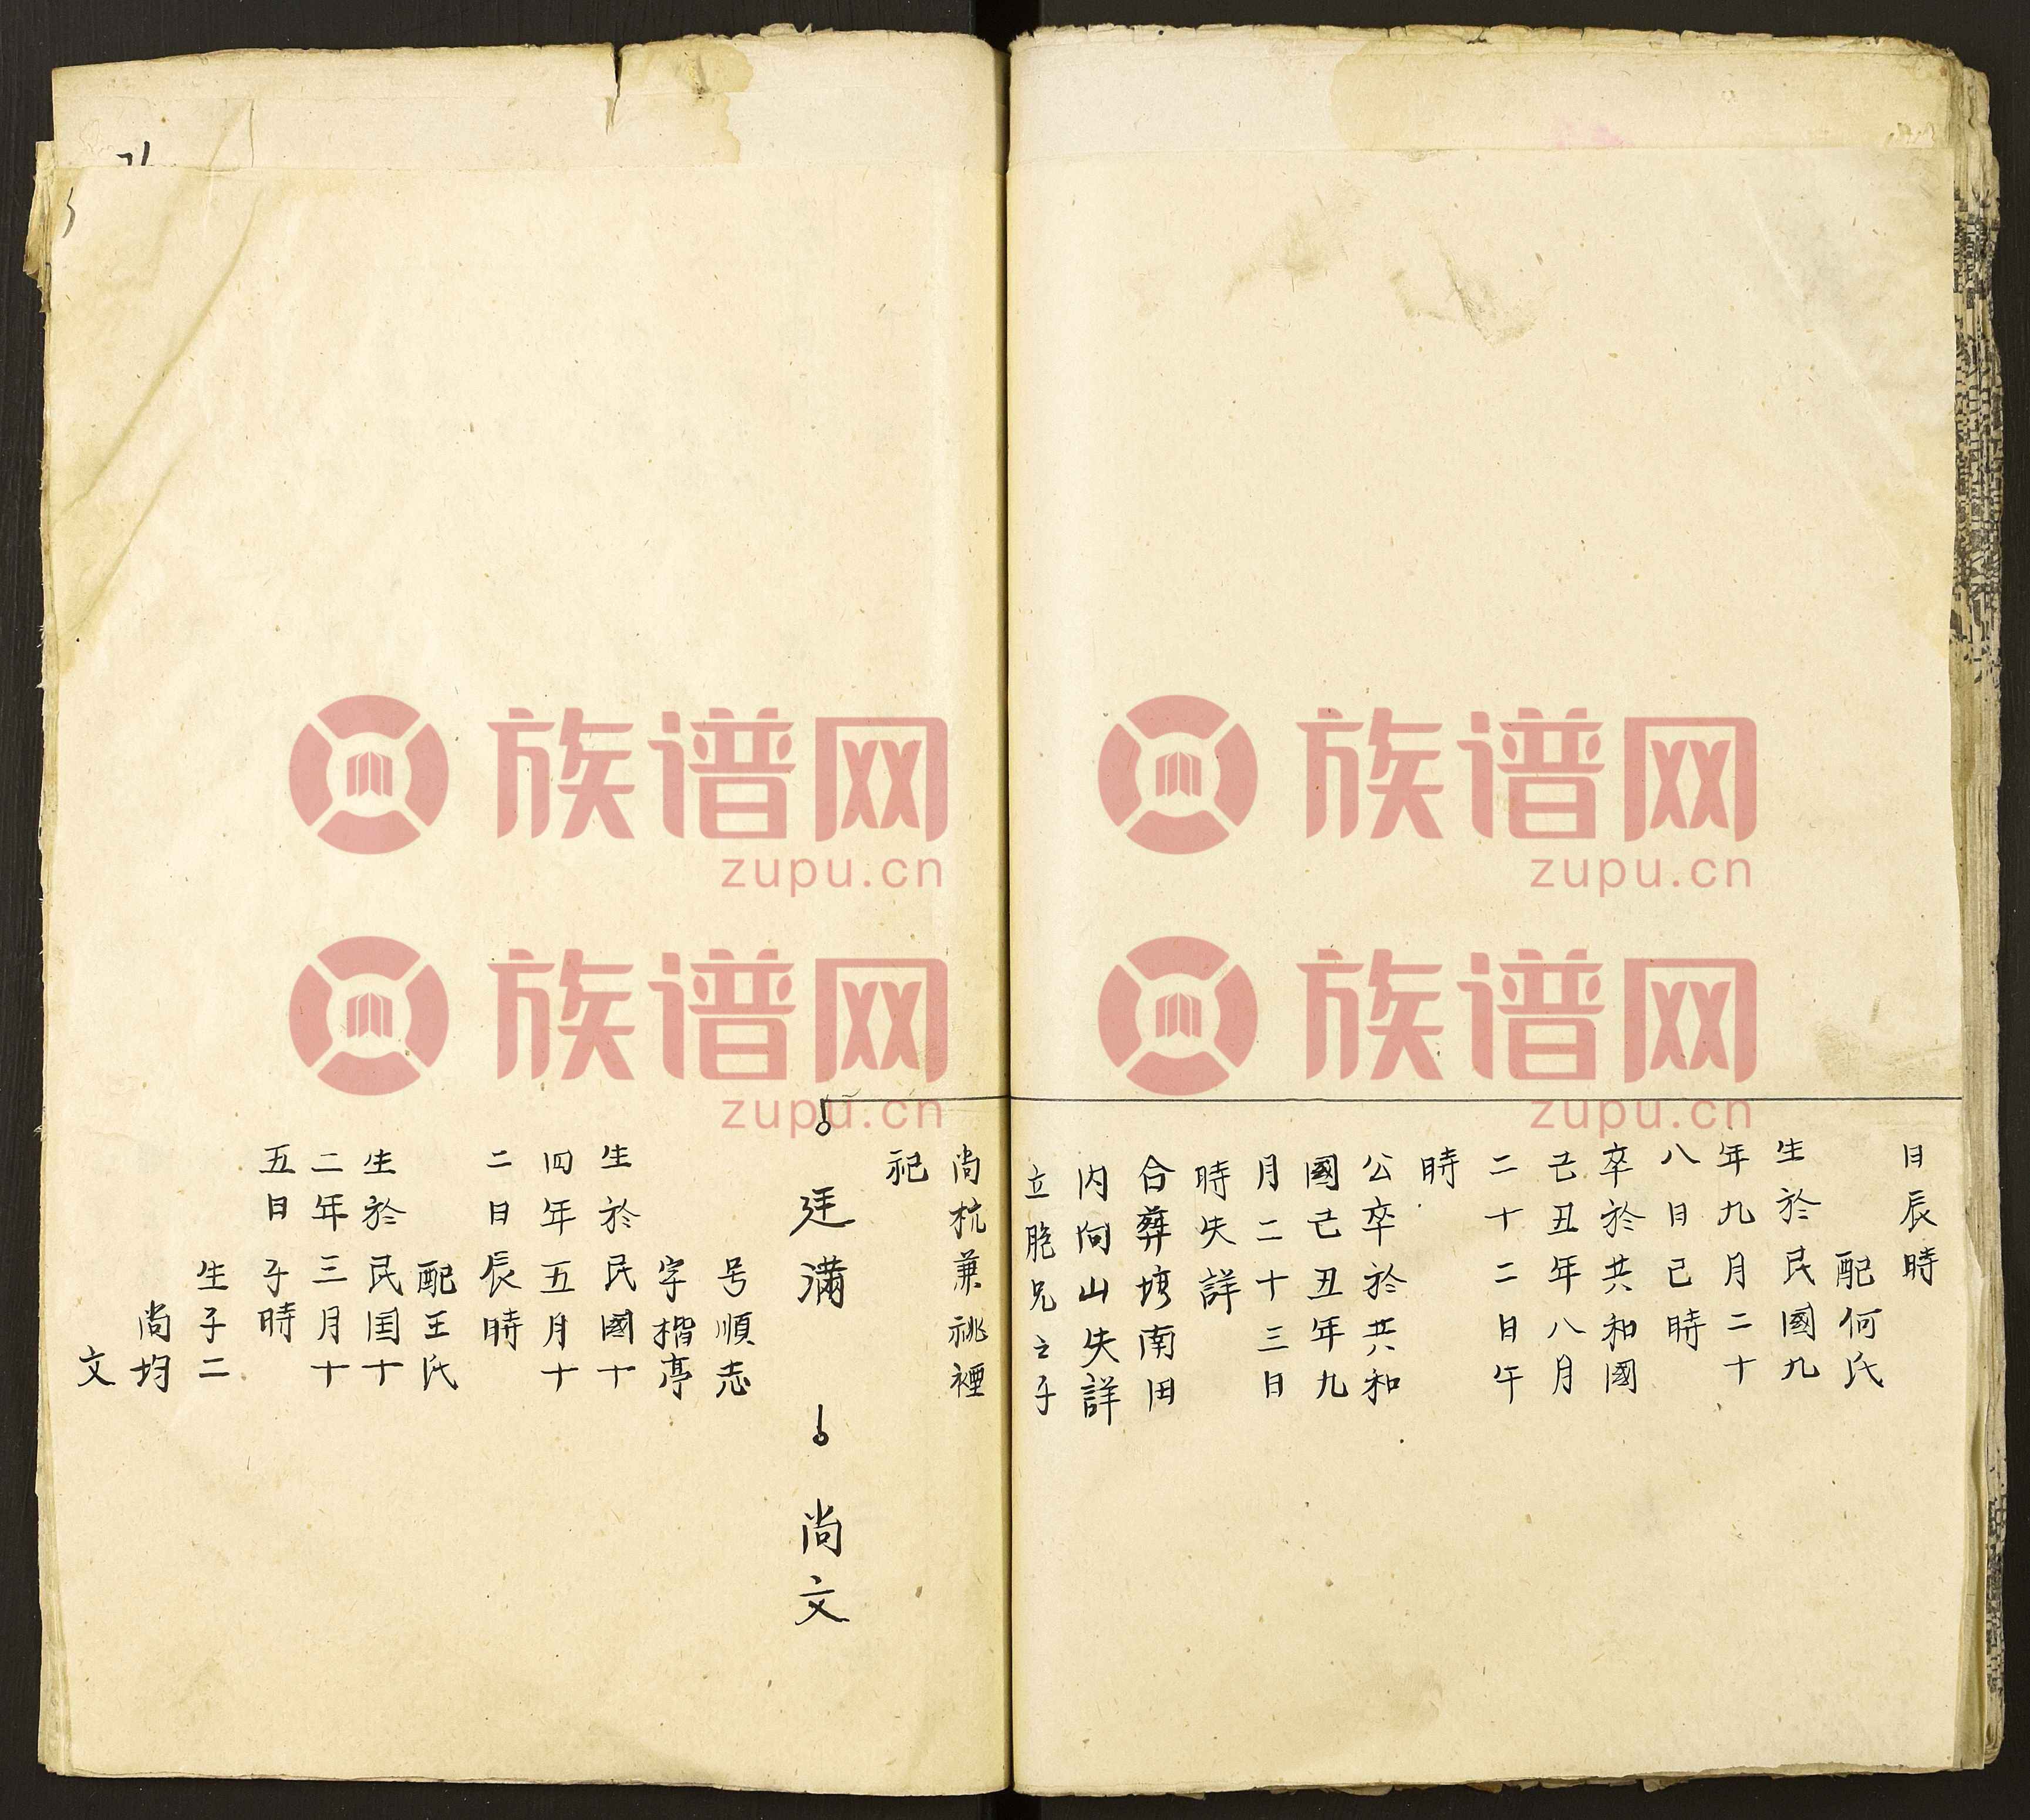 日辰時
配何氏
生於民國九
年九月二十
八日己時
卒於共和國
己丑年八月
二十二日午
時
公卒於共和
國己丑年九
月二十三日
時失詳
合葬塆南田
内向山失詳
立胞兄之子
尚杭兼祧禋
祀
廷满 尚文
号順志
字楷亭
生於民國十
四年五月十
二日辰時
配王氏
生於民国十
二年三月十
五日子時
生子二
尚均
文
族谱网
zupu.cn
族谱网
zupu.cn
族谱网
zupu.cn
族谱网
zupu.cn